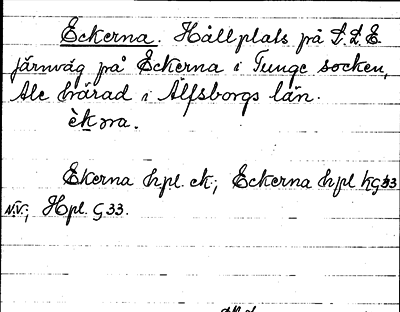 Eckerna. Hållplats på S.L.E.
järnväg på Eckerna i Tunge socken,
Ale härad i Älfsborgs län.
èkṇa.
Ekerna hpl. ek.; Eckerna hpl kG33
N.V.; Hpl. G33.